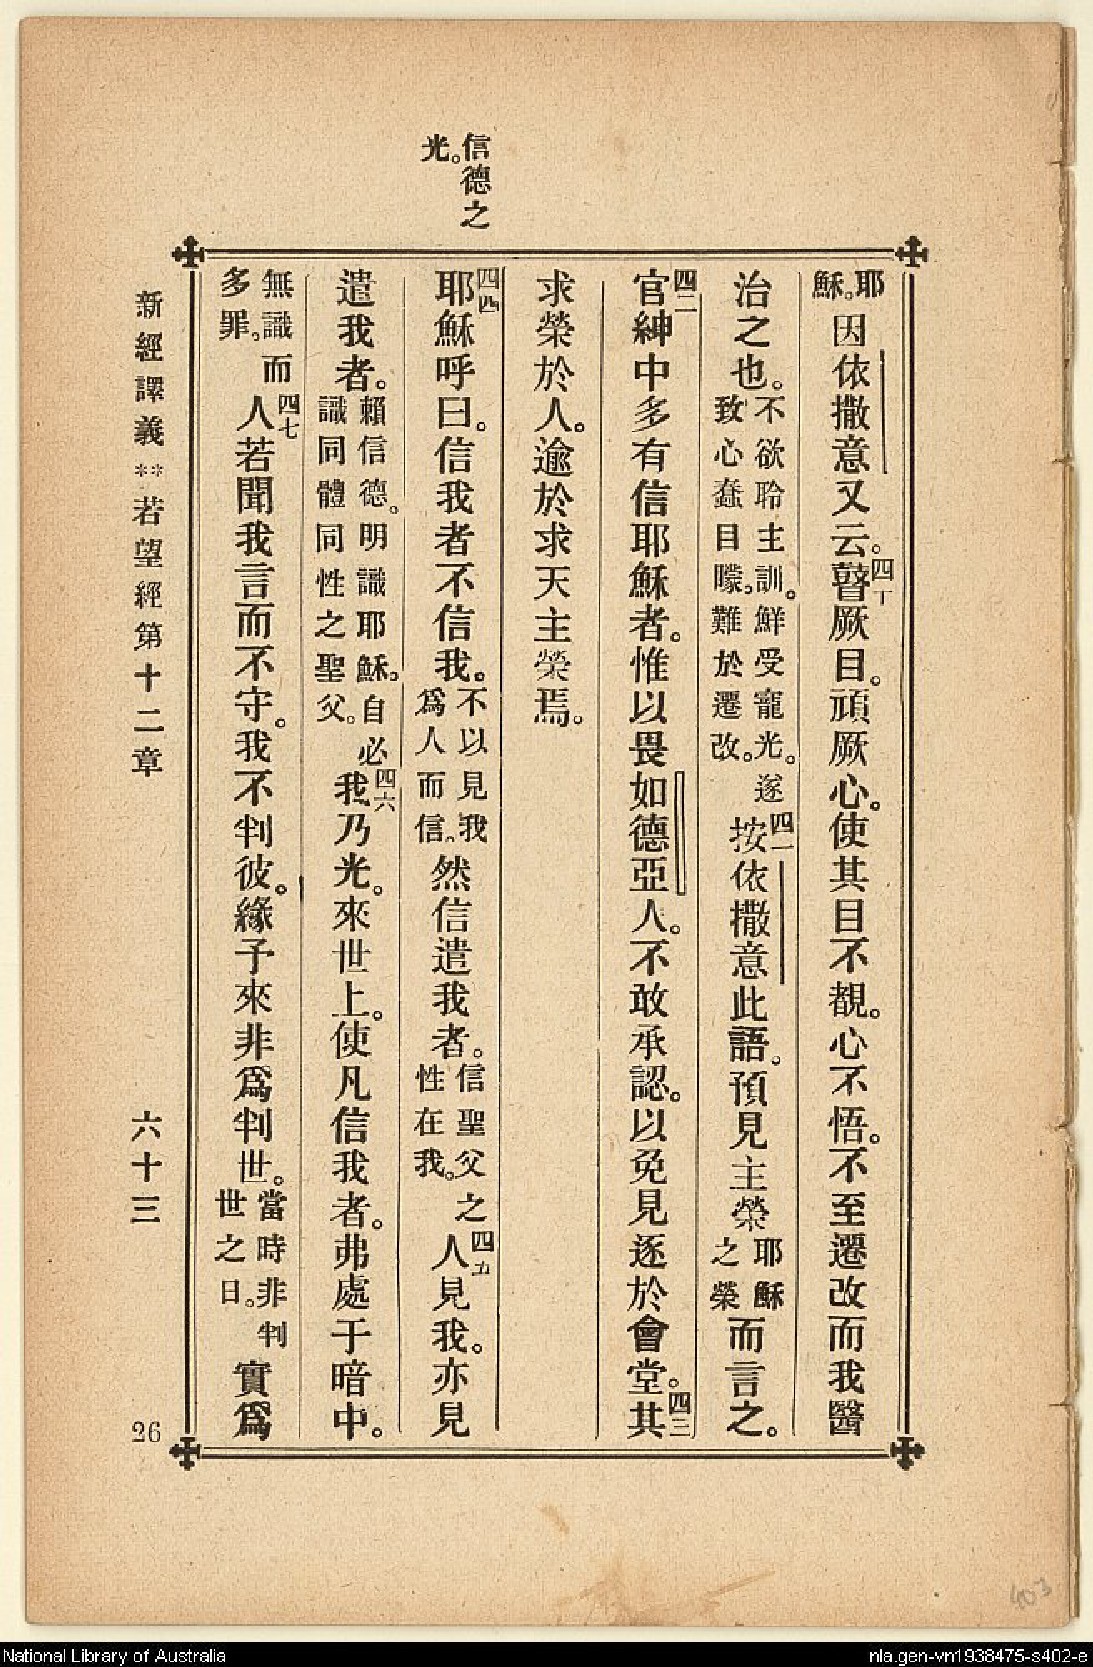 信德之
光。
耶
穌。因依撒意又云。四十瞽厥目。頑厥心。使其目不覩。心不悟。不至遷改而我醫
治之也。不欲聆主訓。鮮受寵光。遂致心蠢目矇。難於遷改。四一按依撒意此語。預見主榮耶穌之榮而言之。
四二官紳中多有信耶穌者。惟以畏如德亞人。不敢承認。以免見逐於會堂。四三其
求榮於人。逾於求天主榮焉。
四四耶穌呼曰。信我者不信我。不以見我爲人而信。然信遣我者。信聖父之性在我。四五人見我。亦見
遣我者。賴信德。明識耶穌。自必識同體同性之聖父。四六我乃光。來世上。使凡信我者。弗處于暗中。
無識而多罪。四七人若聞我言而不守。我不判彼。緣予來非爲判世。當時非判世之日。實爲
新經譯義**若望經第十二章 六十三 26
403
National Library of Australia
nla.gen-vn1938475-s402-e